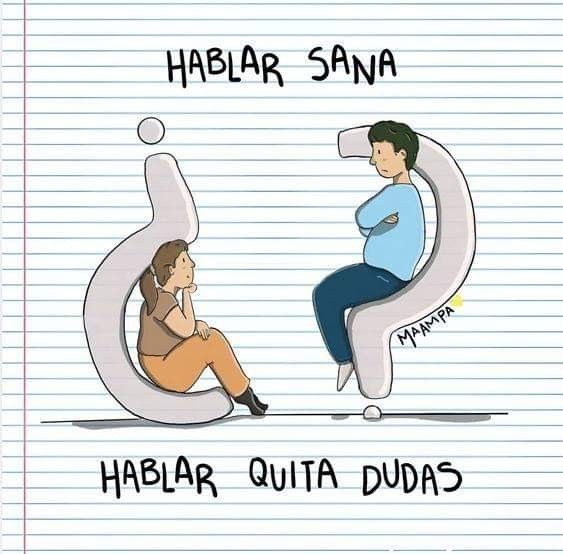 HABLAR SANA
MAAMPA
HABLAR QUITA DUDAS